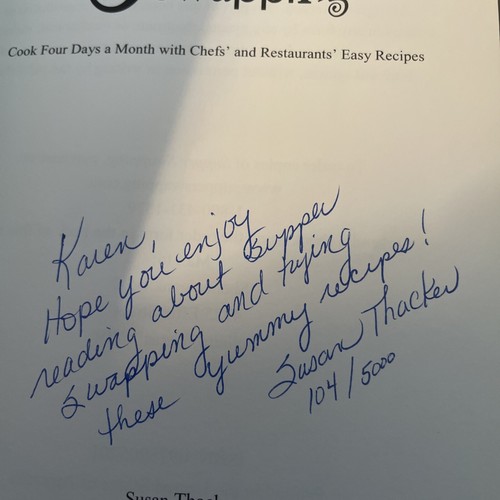 Swapping
Cook Four Days a Month with Chefs' and Restaurants' Easy Recipes
Karen,
Hope you enjoy
reading about Supper
Swapping and trying
these yummy recipes!
Susan Thacker
104/5000
Susan